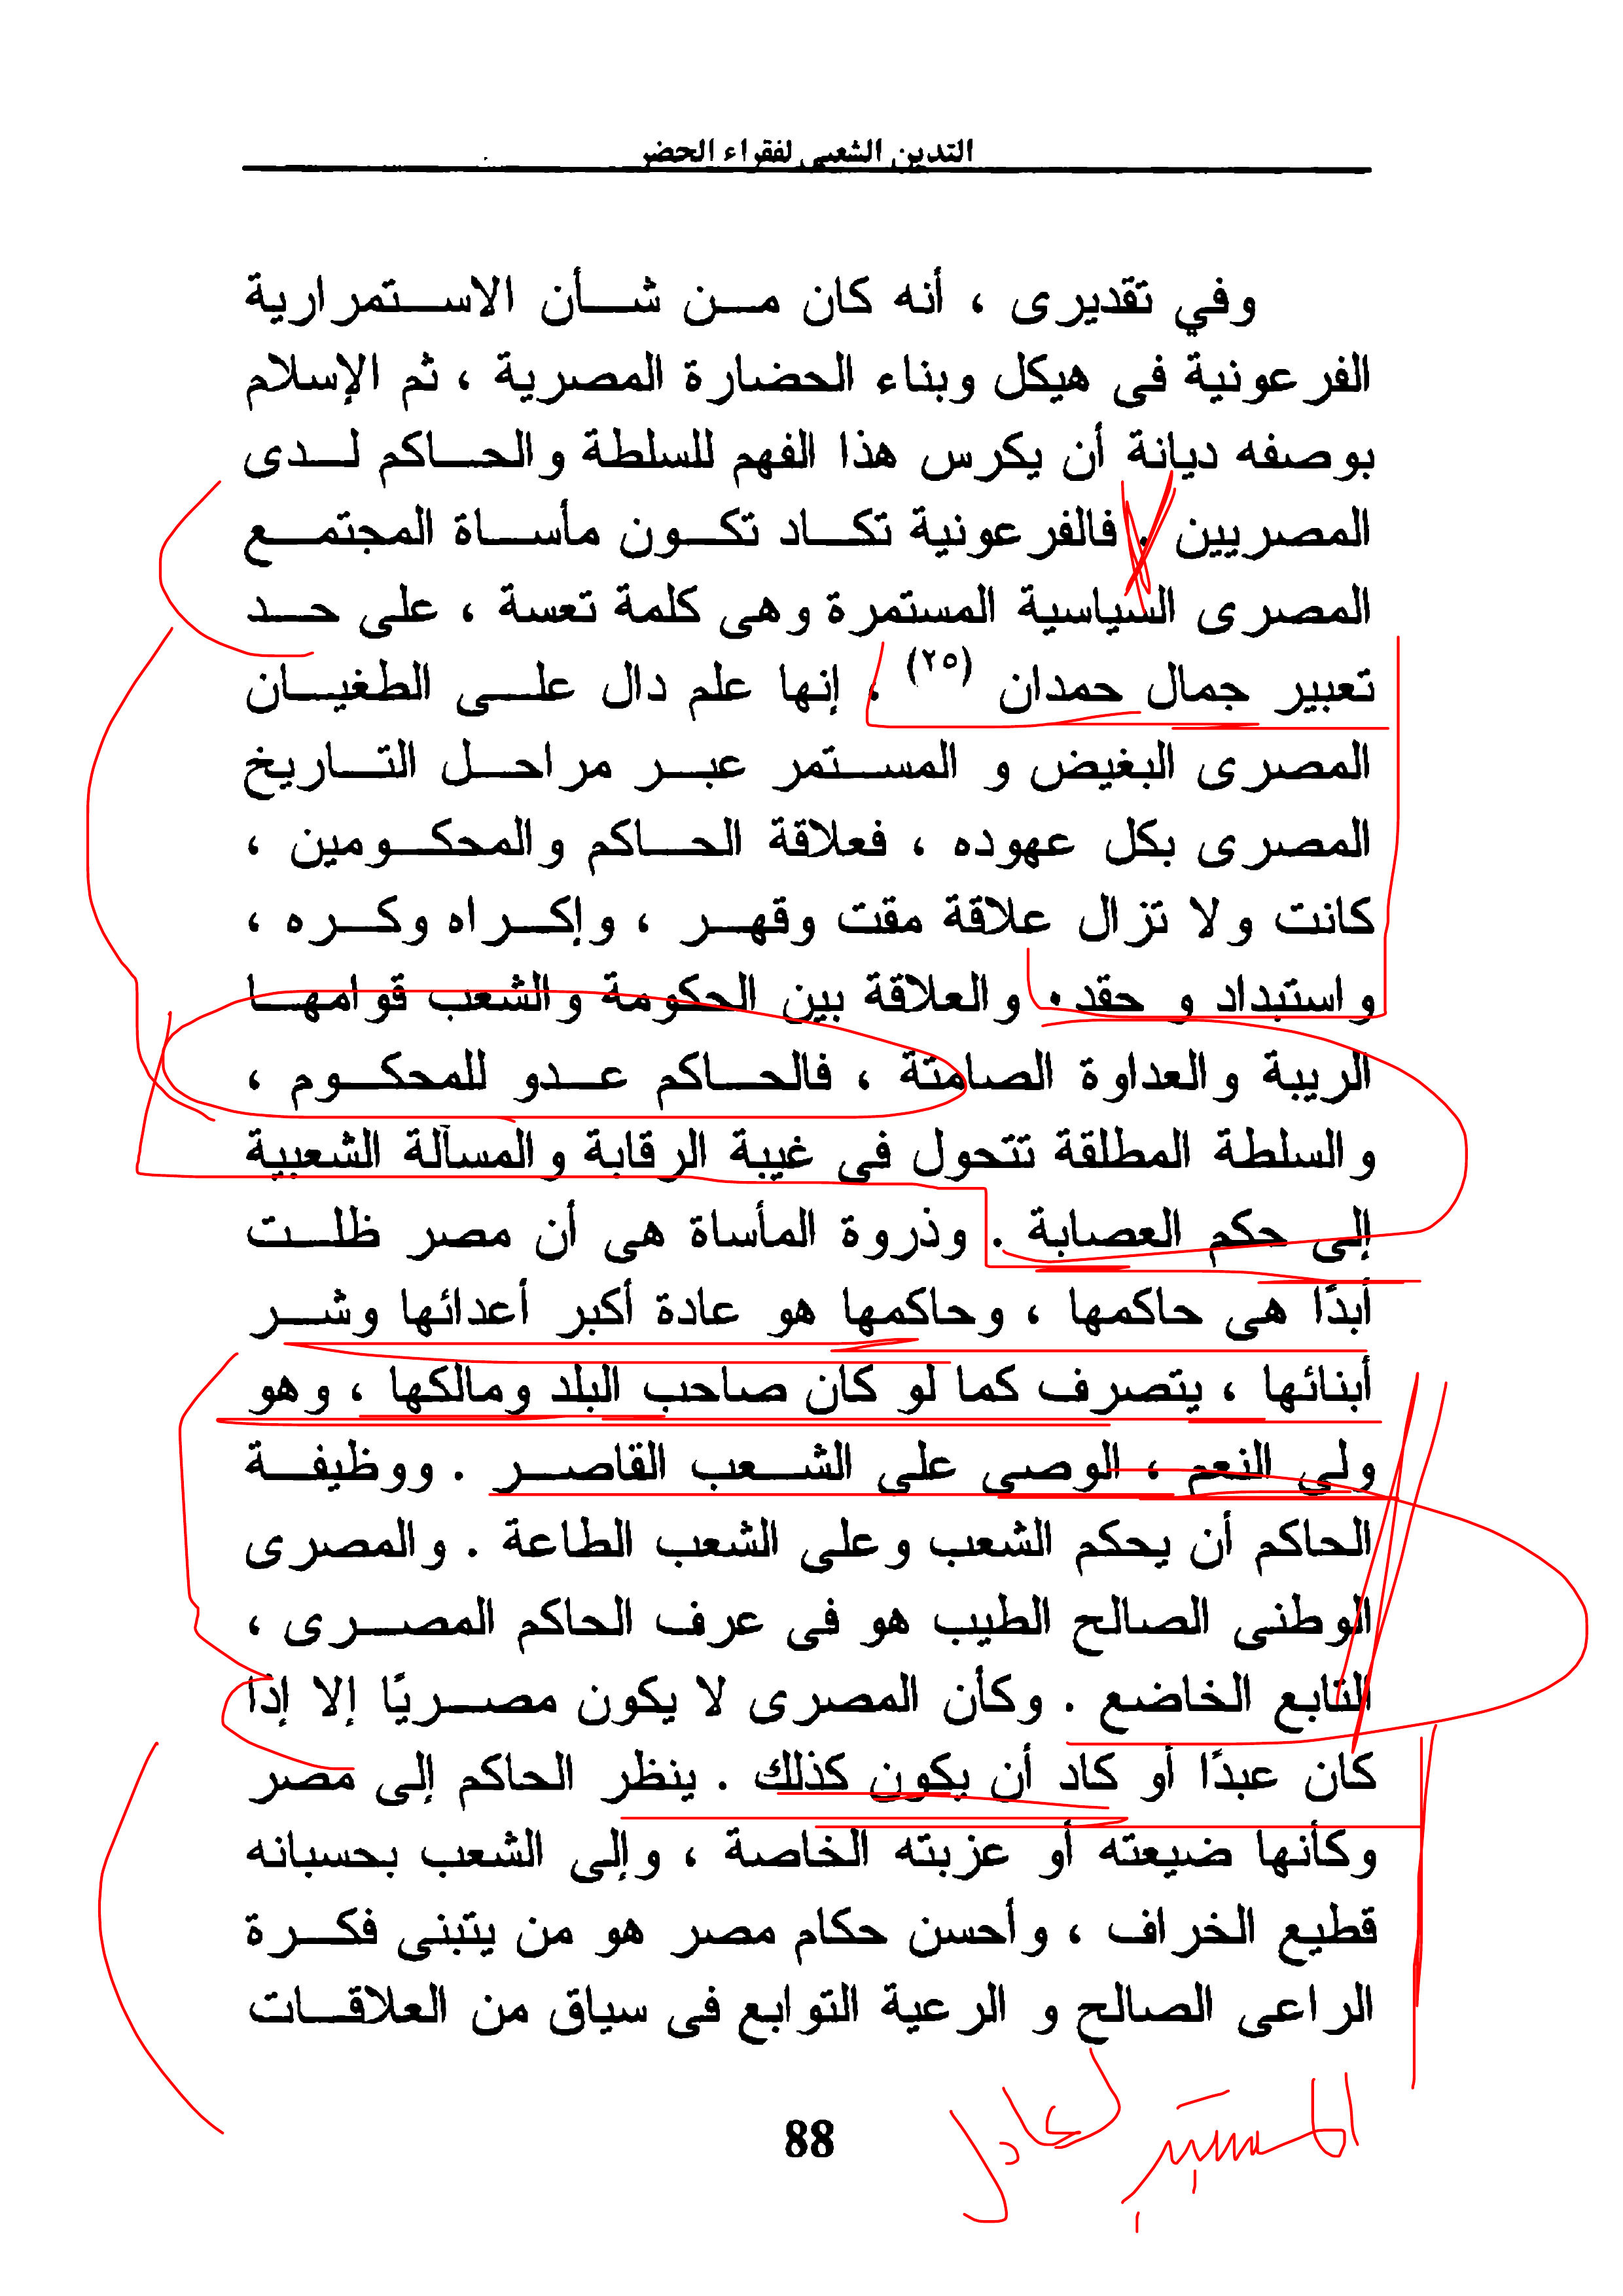 التدين الشعبي لفقراء الحضر
وفي تقديرى ، أنه كان مـن شـأن الاستمرارية
الفرعونية فى هيكل وبناء الحضارة المصرية ، ثم الإسلام
بوصفه ديانة أن يكرس هذا الفهم للسلطة والحاكم لدى
المصريين . فالفرعونية تكاد تكون مأساة المجتمع
المصرى السياسية المستمرة وهى كلمة تعسة ، على حد
تعبير جمال حمدان (٢٥) ، إنها علم دال على الطغيان
المصرى البغيض و المستمر عبر مراحل التاريخ
المصرى بكل عهوده ، فعلاقة الحاكم والمحكومين ،
كانت ولا تزال علاقة مقت وقهر ، وإكراه وكره ،
واستبداد و حقد. والعلاقة بين الحكومة والشعب قوامها
الريبة والعداوة الصامتة ، فالحاكم عدو للمحكوم ،
والسلطة المطلقة تتحول فى غيبة الرقابة والمسآلة الشعبية
إلى حكم العصابة . وذروة المأساة هى أن مصر ظلت
أبدًا هى حاكمها ، وحاكمها هو عادة أكبر أعدائها وشر
أبنائها ، يتصرف كما لو كان صاحب البلد ومالكها ، وهو
ولى النعم ، الوصى على الشعب القاصر . ووظيفة
الحاكم أن يحكم الشعب وعلى الشعب الطاعة . والمصرى
الوطنى الصالح الطيب هو فى عرف الحاكم المصرى ،
التابع الخاضع . وكأن المصرى لا يكون مصريًا إلا إذا
كان عبدًا أو كاد أن يكون كذلك . ينظر الحاكم إلى مصر
وكأنها ضيعته أو عزبته الخاصة ، وإلى الشعب بحسبانه
قطيع الخراف ، وأحسن حكام مصر هو من يتبنى فكرة
الراعى الصالح و الرعية التوابع فى سياق من العلاقات
المستبد العادل
88